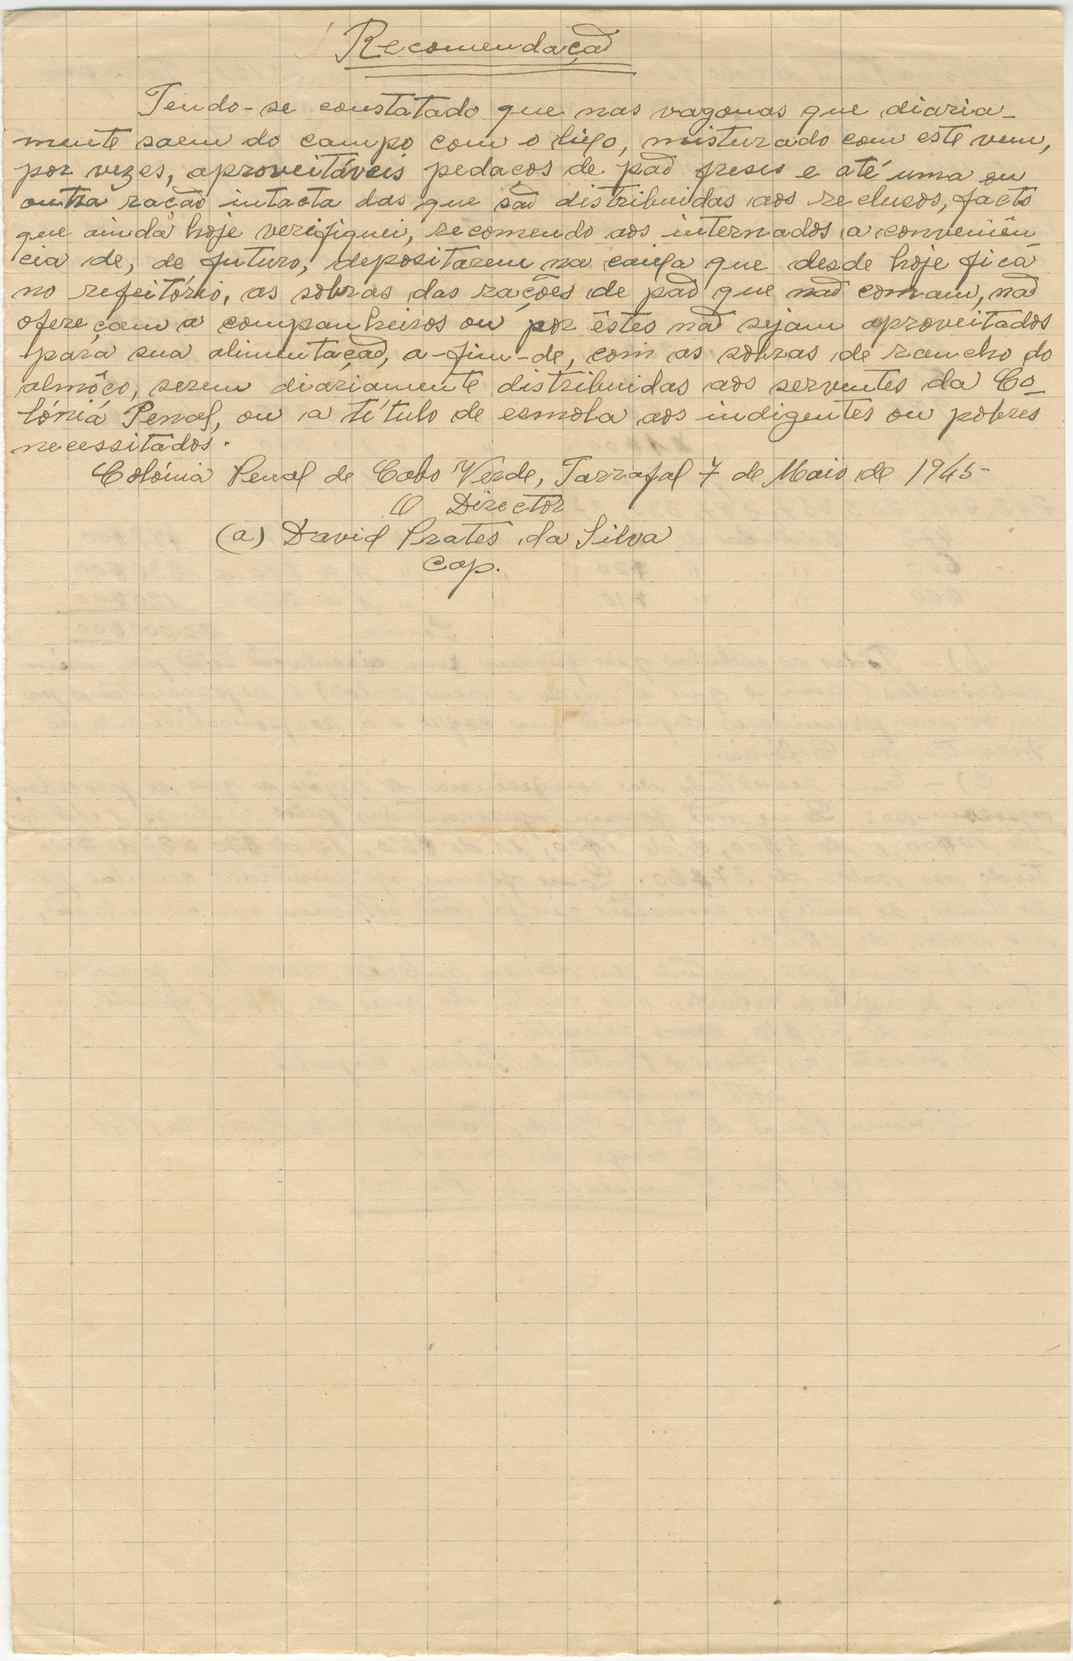 Recomendação
Tendo-se constatado que nas vagonas que diaria-
mente saem do campo com o lixo, misturado com este vem,
por vezes, aproveitáveis pedaços de pão fresco e até uma ou
outra ração intacta das que são distribuidas aos reclusos, facto
que ainda hoje verifiquei, recomendo aos internados a conveniên-
cia de, de futuro, depositarem na caixa que desde hoje fica
no refeitório, as sobras das rações de pão que não comam, não
ofereçam a companheiros ou por êstes não sejam aproveitados
para sua alimentação, a-fim-de, com as sobras de rancho do
almôço, serem diariamente distribuidas aos serventes da Co-
lónia Penal, ou a título de esmola aos indigentes ou pobres
necessitados.
Colónia Penal de Cabo Verde, Tarrafal 7 de Maio de 1945-
O Director
(a) David Prates da Silva
Cap.